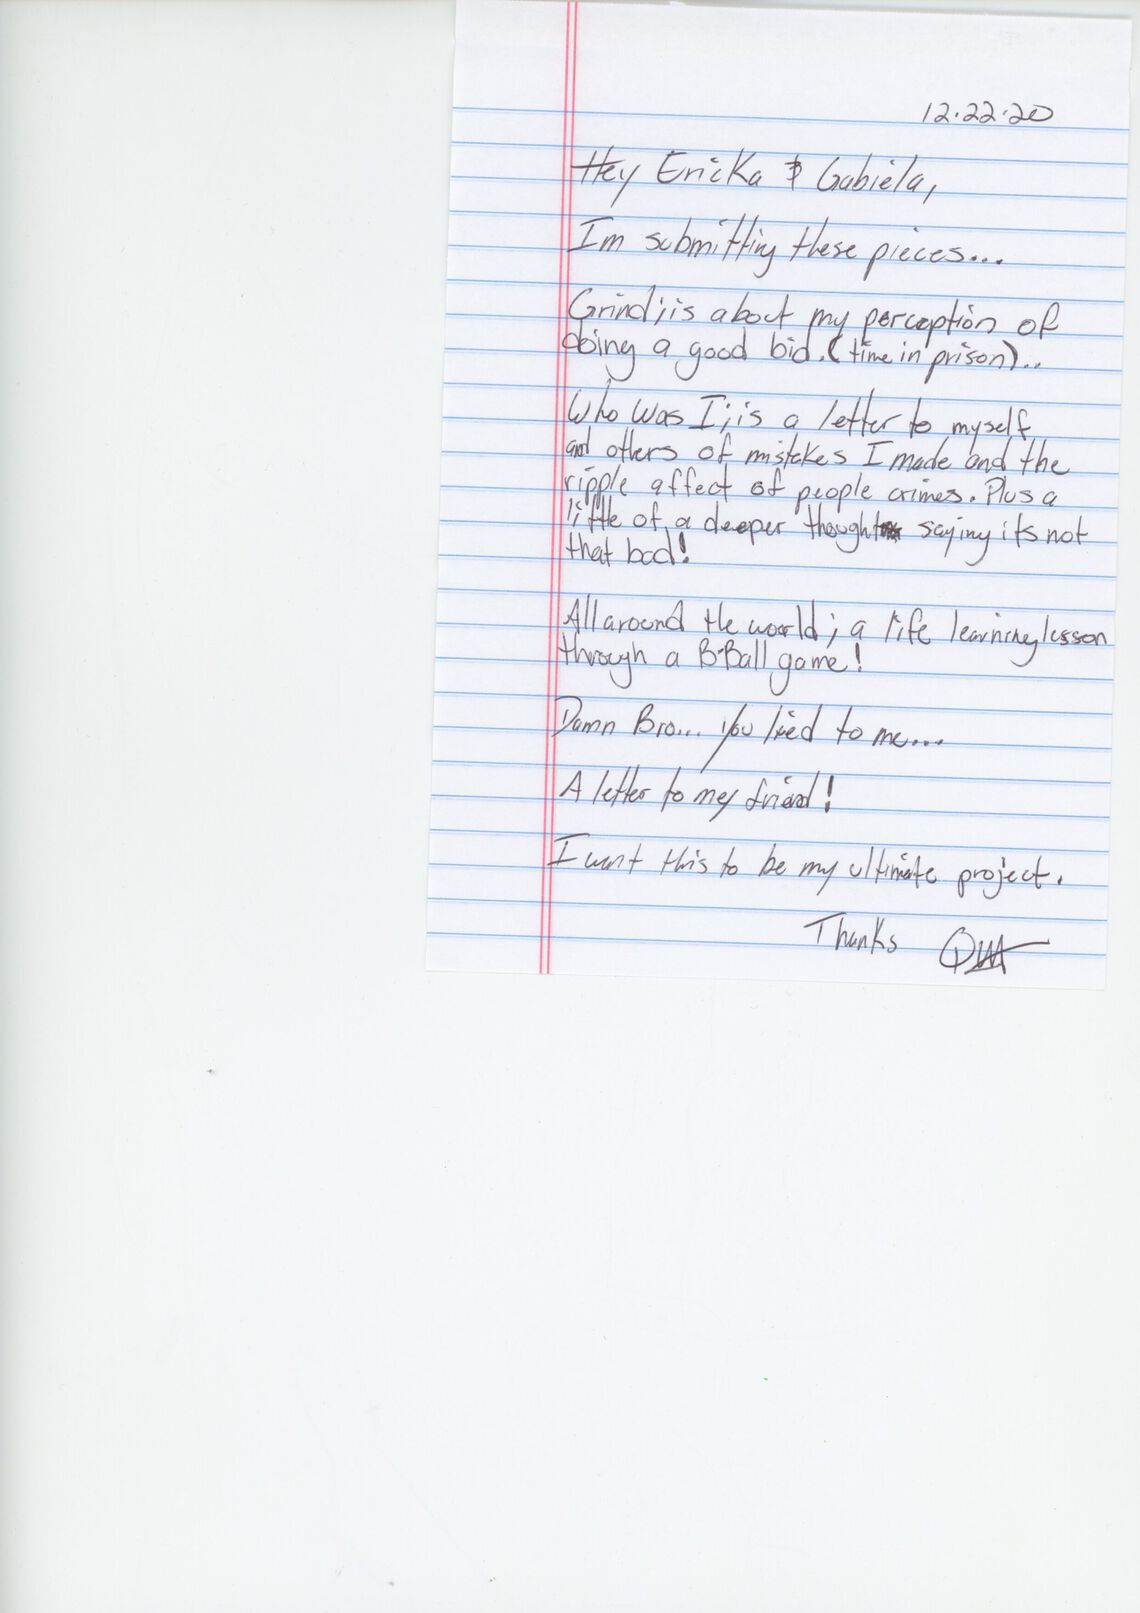 12.22.20
Hey Ericka & Gabiela,
Im submitting these pieces...
Grind; is about my perception of
doing a good bid. (time in prison)..
Who Was I; is a letter to myself
and others of mistakes I made and the
ripple affect of people crimes. Plus a
little of a deeper thought saying its not
that bad!
All around the world; a life learning lesson
through a B-Ball game!
Damn Bro... you lied to me...
A letter to my friend!
I want this to be my ultimate project.
Thanks